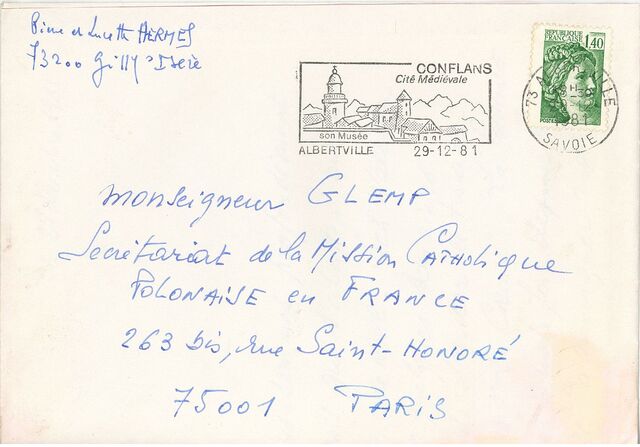 Pierre et Lucette HERMES
73200 Gilly s/Isère
CONFLANS
Cité Médiévale
son Musée
ALBERTVILLE 29-12-81
REPUBLIQUE
FRANÇAISE 1,40
73 ALBERTVILLE
1981
SAVOIE
Monseigneur GLEMP
Secrétariat de la Mission CATHolique
POLONAISE en FRANCE
263 bis, rue Saint-HONORÉ
75001 PARIS